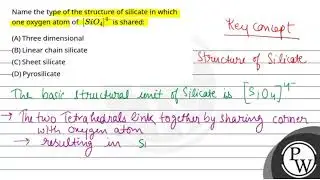 Name the type of the structure of silicate in which
one oxygen atom of [SiO₄]⁴⁻ is shared:
(A) Three dimensional
(B) Linear chain silicate
(C) Sheet silicate
(D) Pyrosilicate
Key concept
Structure of Silicate.
The basic structural unit of Silicate is [SiO4]4-
→ The two Tetrahedrals link together by sharing corner
with oxygen atom
→ resulting in S
PW